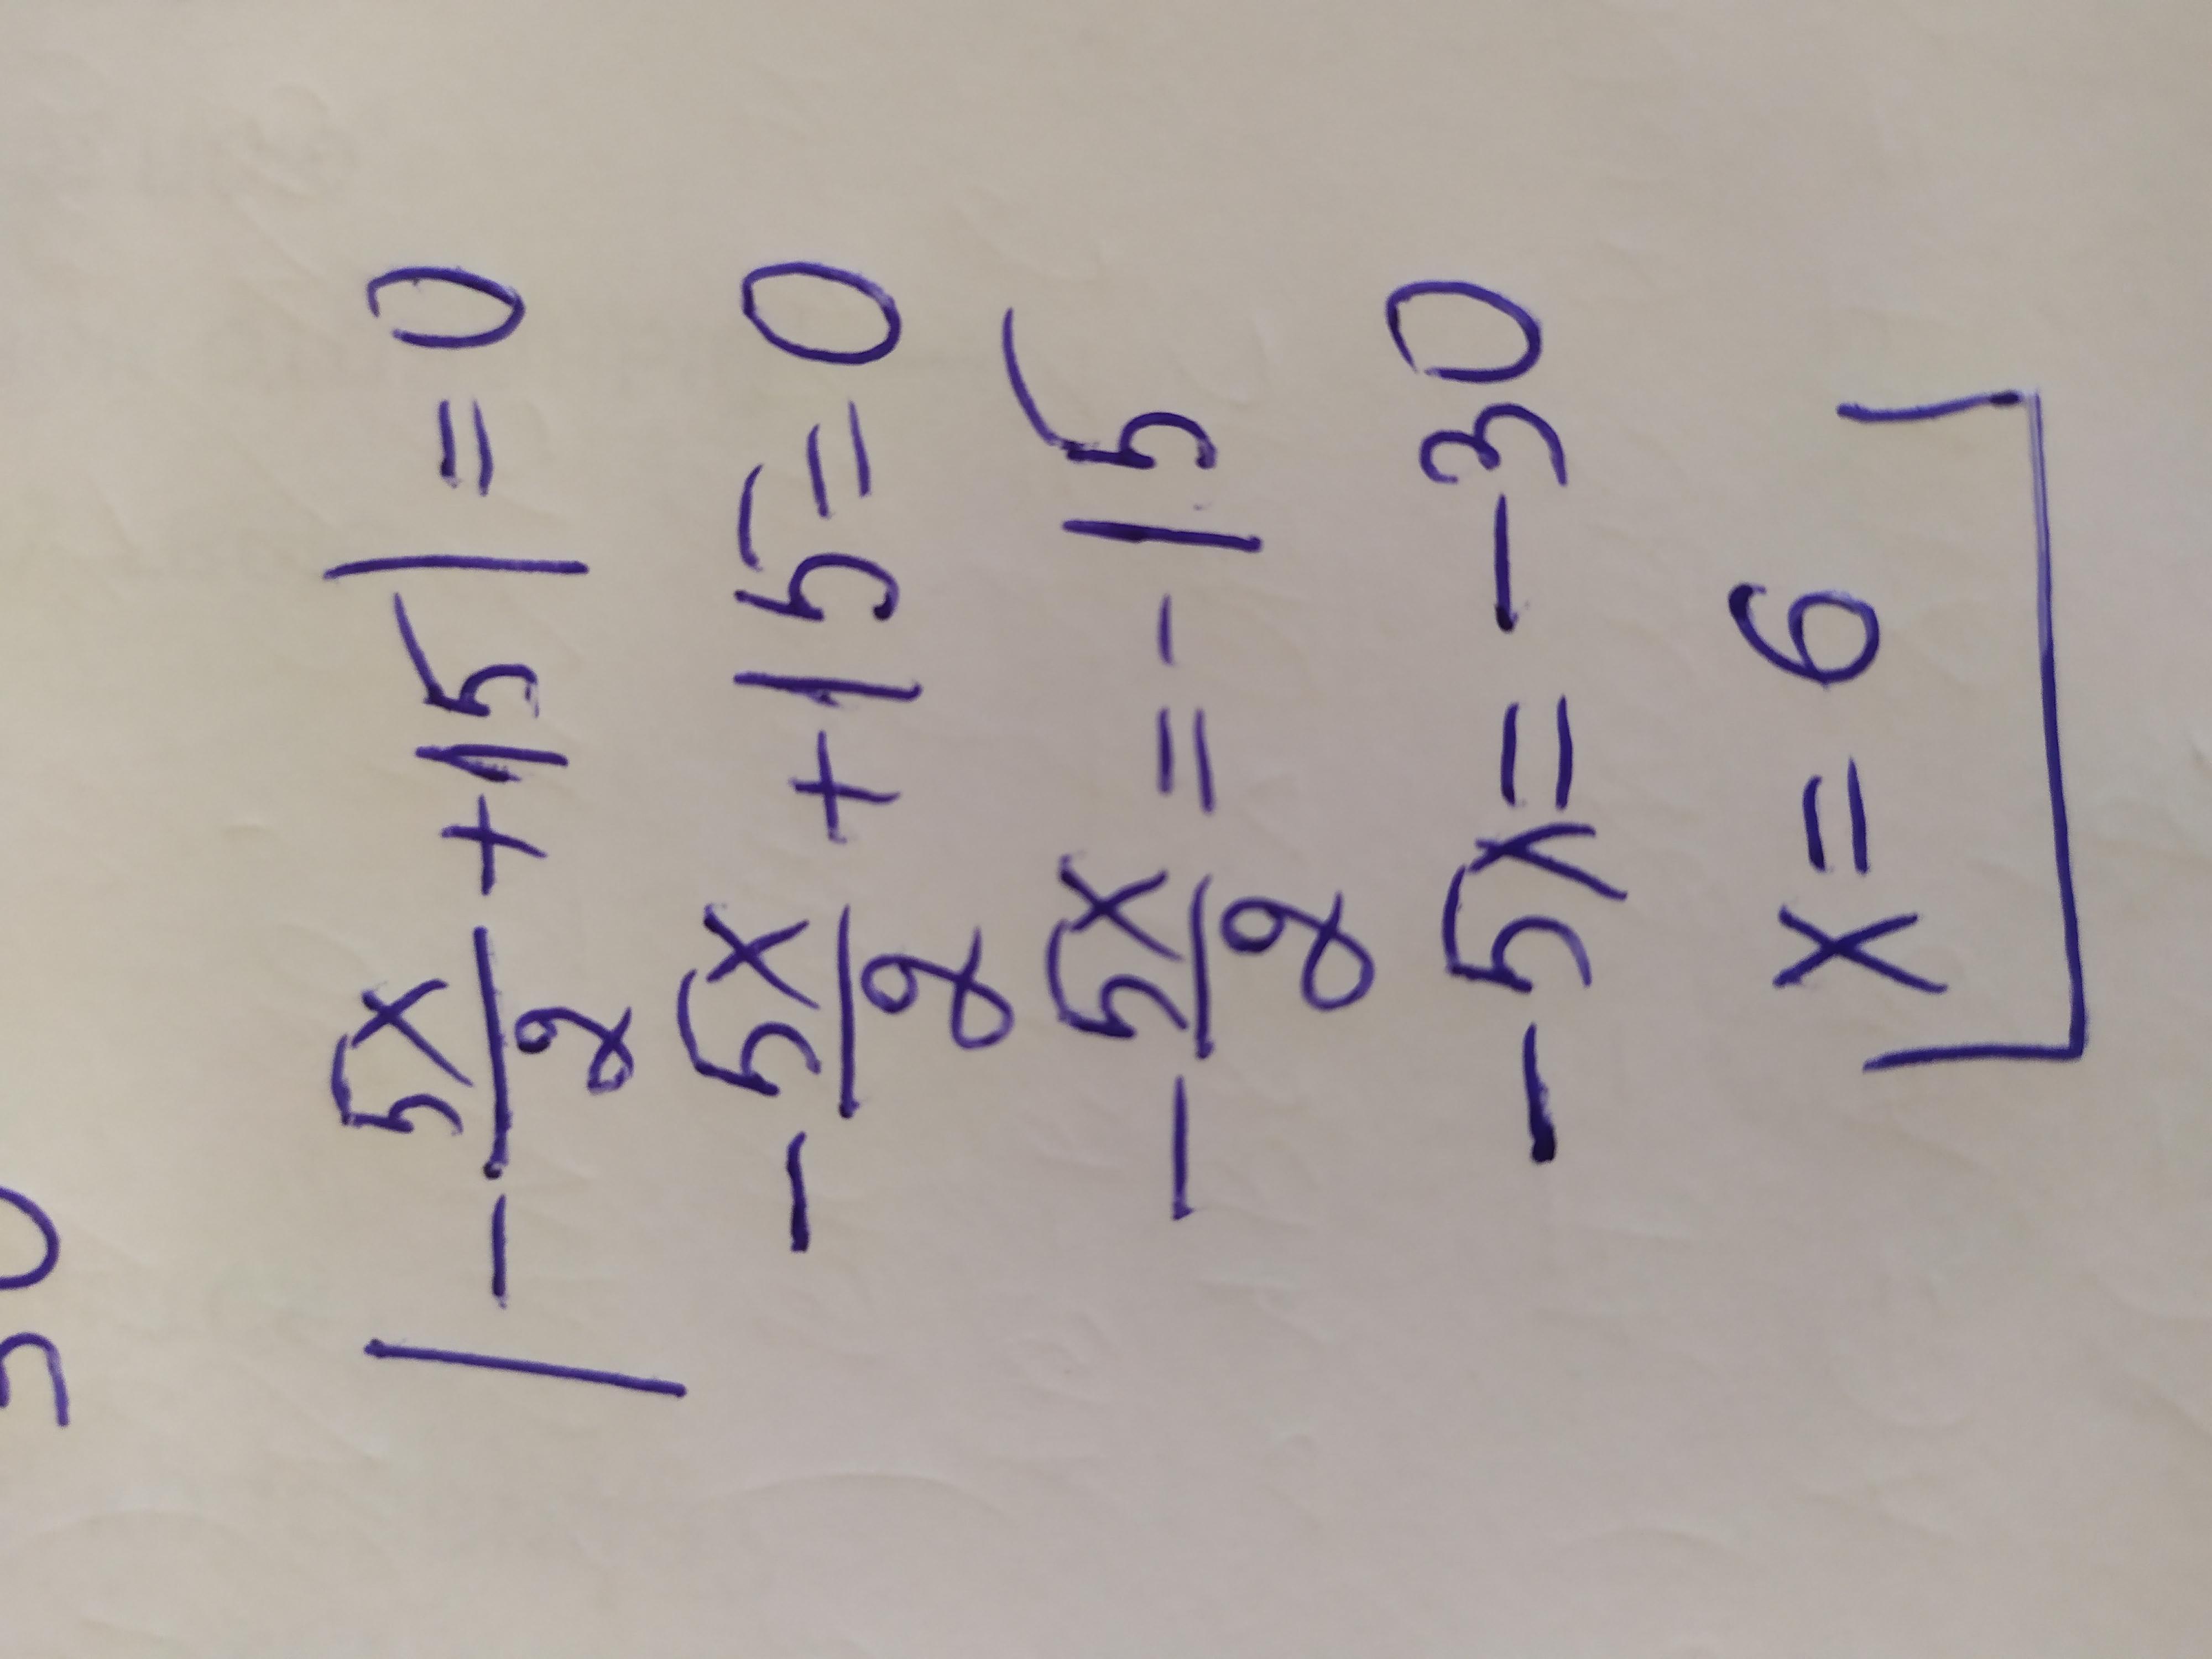 |-5x/2 + 15| = 0
-5x/2 + 15 = 0
-5x/2 = -15
-5x = -30
x = 6